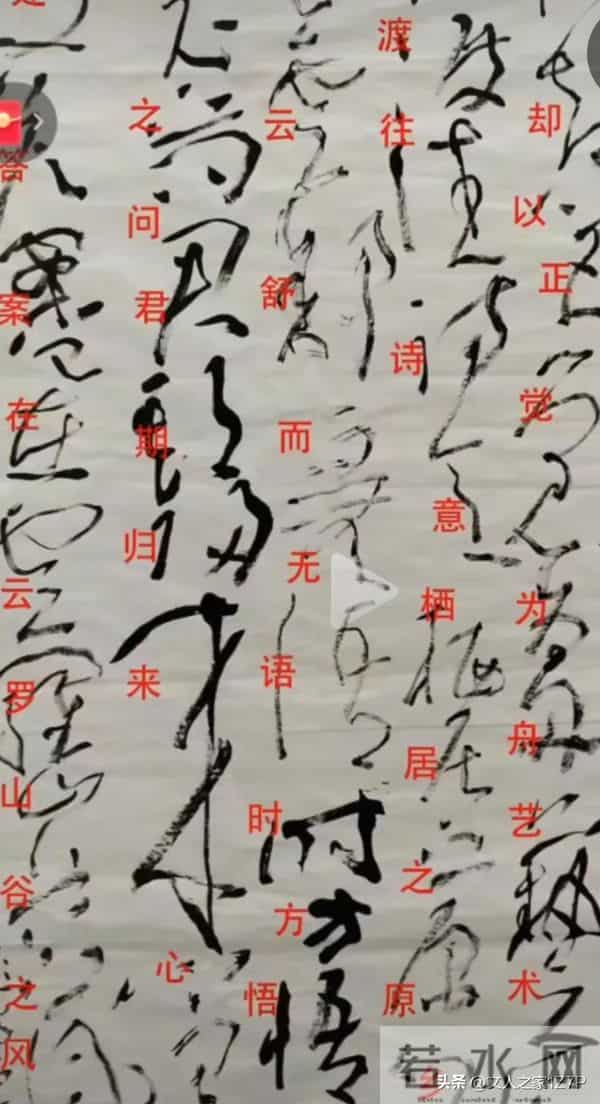 却以正觉为舟艺术
渡往诗意栖居之原
云舒而无语时方悟
之问君期归来心
答案在云罗山谷之风
若水网
头条 @文人之家